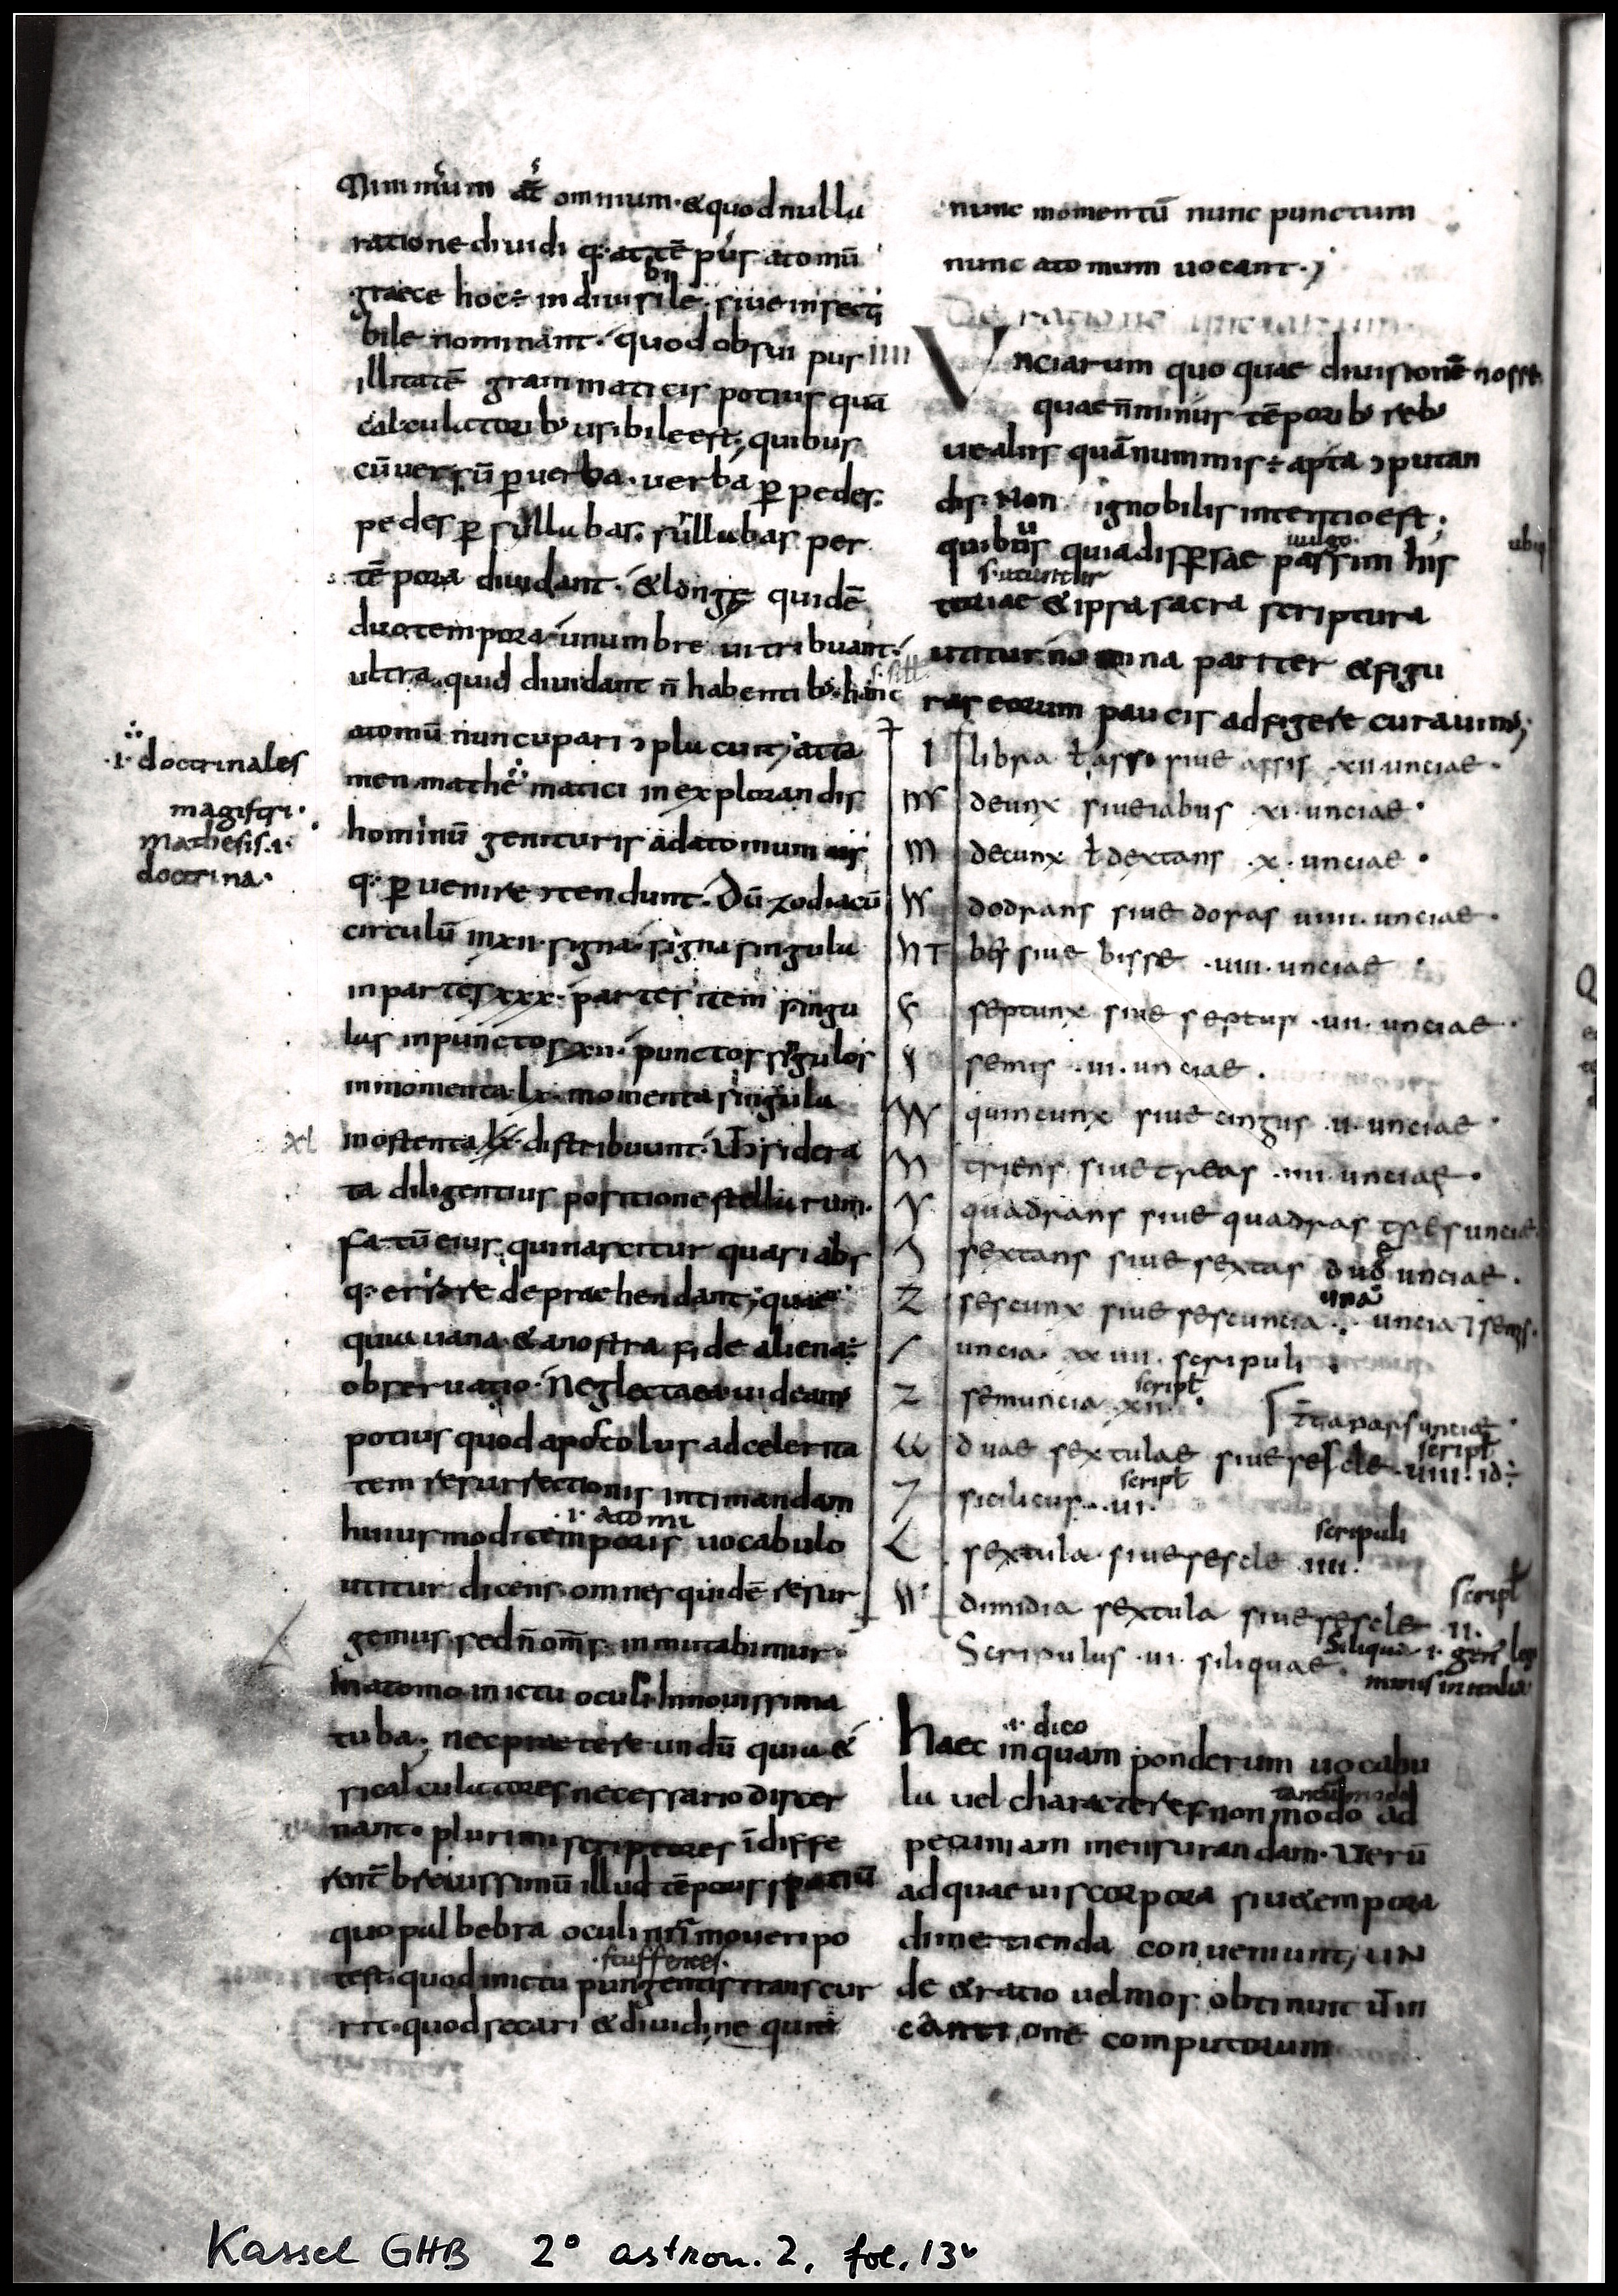 Minimum aut omnium · & quod nulla
ratione diuidi q: at tē pus atomū
graece hoc ÷ indiuisibile siue insecti
bile nominant · quod obsui pus
illitatē grammaticis potius quā
calculatorib; uisibile est; quibus
cū uersū ꝑ uerba · uerba ꝑ pedes ·
pedes ꝑ sullabas · sullabas per
tēpora diuidant · & longę quidē
duo tempora · unum breui tribuant ·
s. sill
ultra quid diuidant n̄ habentib; hanc
atomū nuncupari ɔplacuit; atta
·i· doctrinales
magistri ·
Mathesis · i ·
doctrina ·
men mathematici in explorandis
hominū genituris ad atomum us
q: ꝑuenire ɔtendunt · Dū zodiacū
circulū in xii · signa · signa singula
in partes xxx · partes item singu
las in punctos xii · punctos singulos
in momenta · lx · momenta singula
xl
in ostenta lx · distribuunt · ut ɔsidera
ta diligentius positione stellarum ·
fatū eius qui nascitur quasi abs
q: errore deprachendant; quae
quia uana & a nostra fide aliena ÷
obseruatio · Neglecta ea uideam
potius quod apostolus ad celerita
tem resurrectionis intimandam
·i· atomi
huiusmodi temporis uocabulo
utitur dicens · omnes quidē resur
gemus · sed n̄ om̄s inmutabimur ·
In atomo in ictu oculi · In nouissima
tuba; nec praetereundū quia &
si calculatores necessario discer
nant · plurimi scriptores īdiffe
rent̄ breuissimū illud tēporis spatiū
quo palbebra oculi nr̄i moueri po
test · quod in ictu pungentis transcur
rit · quod secari & diuidi nequit
nunc momentū nunc punctum
nunc atomum uocant ·;
De ratione unciarum
IIII Vnciarum quoquae diuisionē nosse
quae n̄ minus tēporib; reb;
ue aliis quā nummis ÷ apta ɔputan
dis · Non ignobilis intentio est ·
uulgo ·
quibus quia disꝑsae passim his
s. utuntur
toriae & ipsa sacra scriptura
utitur nomina pariter & figu
ras eorum paucis adfigere curauim;
libra ł ass siue assis · xii · unciae ·
deunx siue iabus · xi · unciae ·
decunx ł dextans · x · unciae ·
dodrans siue doras uiiii · unciae ·
bes siue bisse · uiii · unciae ·
septunx siue septus · uii · unciae ·
semis · ui · unciae ·
quincunx siue cingus · u · unciae ·
triens siue treas · iiii · unciae ·
quadrans siue quadras tres unciae
sextans siue sextas duo unciae ·
una
sescunx siue sescuncia · uncia ⁊ sem̄s ·
uncia · xxiiii · scripuli
script̄
semuncia xii ·
t̄tia pars unciae ·
script̄
duae sextulae siue sescle · uiii · id ÷
script̄
sicilicus · ui ·
scripuli
sextula · siue sescle · iiii ·
script̄
dimidia sextula siue sescle · ii ·
Scripulus · ui · siliquae ·
Siliqua · i · gen̄ leg
minis in italia
·i· dico
Haec inquam ponderum uocabu
la uel characteres non modo ad
pecuniam mensurandam · Verū
ad quaeuis corpora siue tempora
dimetienda conueniunt; UN
de & ratio uel mos obtinuit ut in
cantione computorum
Kassel GHB 2° astron. 2, fol. 13v